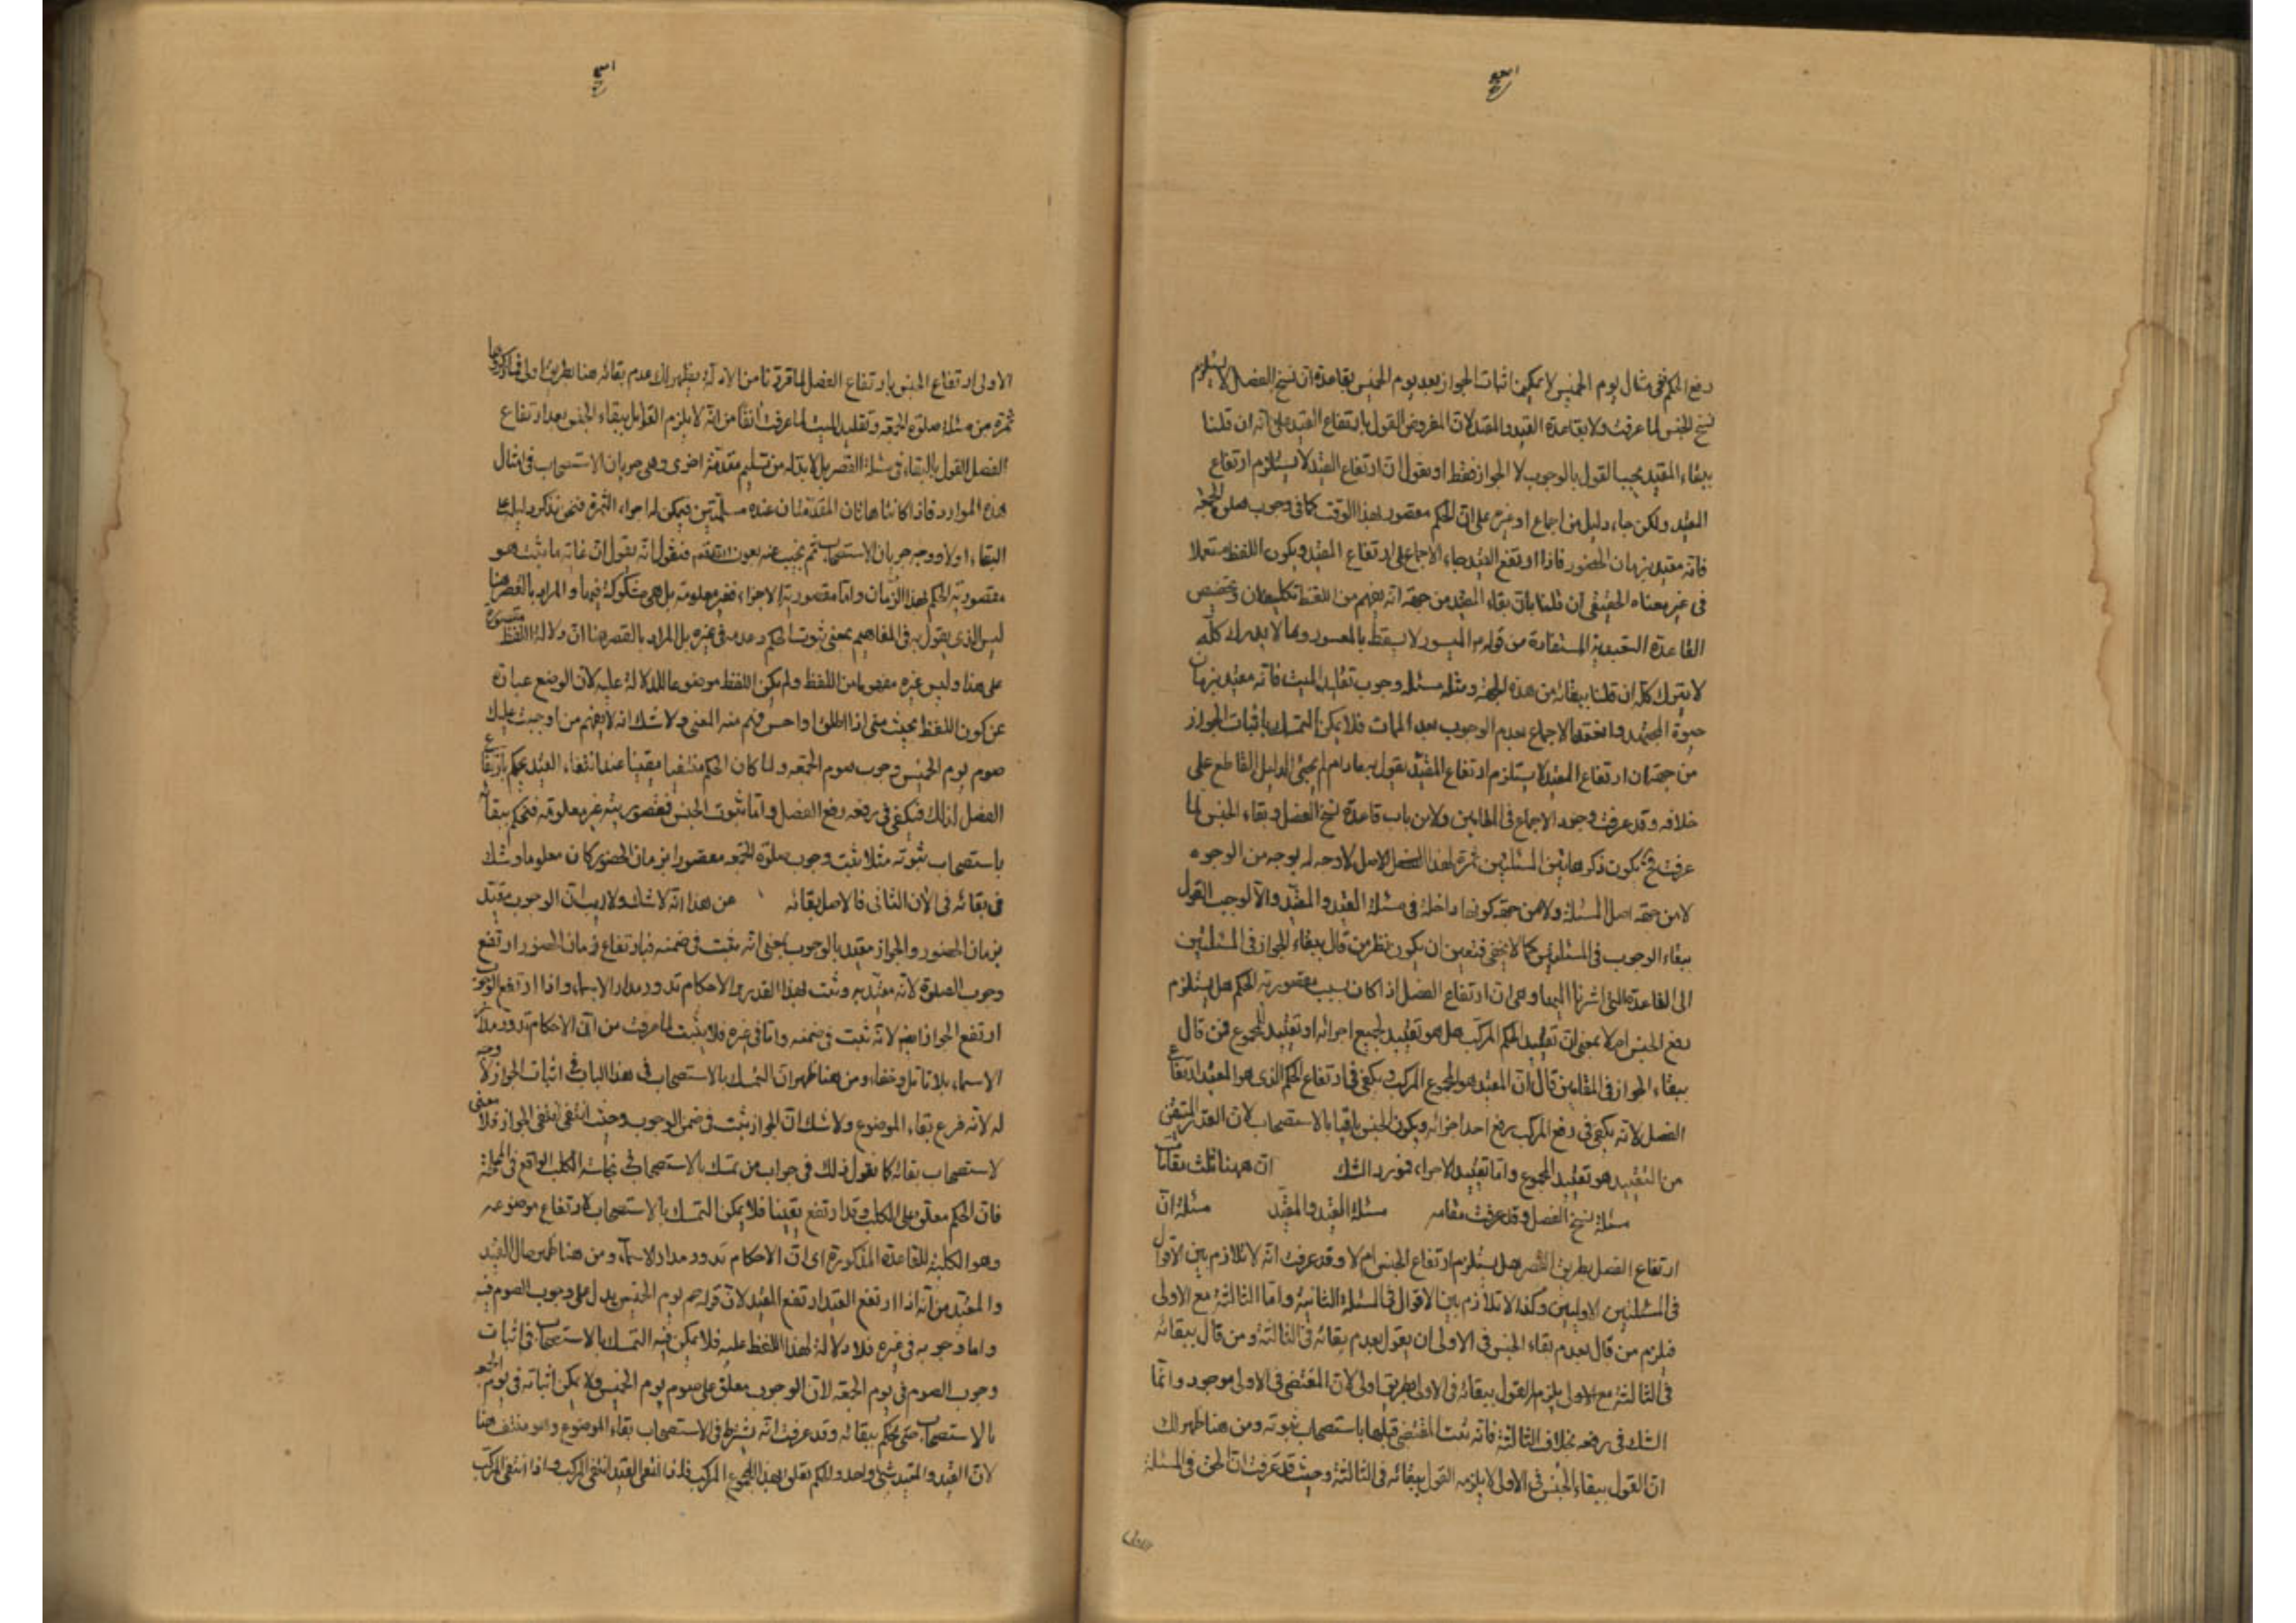 رفع الحكم ففى مثال يوم الخميس لا يمكن اثبات الجواز بعد يوم الخميس بقاعدة ان نسخ الفصل لا يستلزم
نسخ الجنس لما عرفت ولا بقاعدة القيد والمقيد لان المفروض القول بارتفاع القيد على انه ان قلنا
ببقاء المقيد يجب القول بالوجوب لا الجواز فقط او نقول ان ارتفاع القيد لا يستلزم ارتفاع
المقيد ولكن جاء دليل من اجماع او غيره على ان الحكم مقصور بهذا الوقت كما فى وجوب صلوة الجمعة
فانه مقيد بزمان الحضور فاذا ارتفع القيد جاء الاجماع على ارتفاع المقيد ويكون اللفظ مستعملا
فى غير معناه الحقيقى ان قلنا بان بقاء المقيد من جهة انه يفهم من اللفظ تكليفان وتخصيص
القاعدة التعبدية المستفادة من قوله الميسور لا يسقط بالمعسور وما لا يدرك كله
لا يترك كله ان قلنا ببقائه من هذه الجهة ومثله مسئلة وجوب تقليد الميت فانه مقيد بزمان
حيوة المجتهد وانعقد الاجماع بعدم الوجوب بعد الممات فلا يمكن التمسك باثبات الجواز
من جهة ان ارتفاع القيد لا يستلزم ارتفاع المقيد يقول به مادام لم يجئ الدليل القاطع على
خلافه وقد عرفت وجود الاجماع فى المقامين ولا من باب قاعدة نسخ الفصل وبقاء الجنس لما
عرفت فح يكون ذكر هاتين المسئلتين ثمرة لهذا الاصل لا وجه له بوجه من الوجوه
لا من جهة اصل المسئلة ولا من جهة كونها داخلة فى مسئلة القيد والمقيد والا لوجب القول
ببقاء الوجوب فى المسئلتين كما لا يخفى فتعين ان يكون نظر من قال ببقاء الجواز فى المسئلتين
الى القاعدة التى اشرنا اليها وهى ان ارتفاع الفصل اذا كان بسبب مقصورية الحكم هل يستلزم
رفع الجنس ام لا بمعنى ان تقييد الحكم المركب هل هو تقييد لجميع اجزائه او تقييد للمجموع فمن قال
ببقاء الجواز فى المقامين قال ان المقيد هو المجموع المركب ويكفى فى ارتفاع الحكم الذى هو المقيد ارتفاع
الفصل لانه يكفى فى رفع المركب رفع احد اجزائه ويكون الجنس باقيا بالاستصحاب لان القدر المتيقن
من التقييد هو تقييد المجموع واما تقييد الاجزاء فمورد الشك ان هيهنا ثلث مقامات
مسئلة نسخ الفصل وقد عرفت مقامه مسئلة القيد والمقيد مسئلة ان
ارتفاع الفصل بطريق القصر هل يستلزم ارتفاع الجنس ام لا وقد عرفت انه لا تلازم بين الاقوال
فى المسئلتين الاوليين وكذا لا تلازم بين الاقوال فى المسئلة الثانية واما الثالثة مع الاولى
فيلزم من قال بعدم بقاء الجنس فى الاولى ان يقول بعدم بقائه فى الثالثة ومن قال ببقائه
فى الثالثة مع الاولى يلزم القول ببقائه فى الاولى بطريق اولى لان المقتضى فى الاولى موجود وانما
الشك فى رفعه بخلاف الثالثة فانه ثبت المقتضى قبلها باستصحاب ثبوته ومن هنا ظهر لك
ان القول ببقاء الجنس فى الاولى لا يلزمه القول ببقائه فى الثالثة وحيث قد عرفت ان الحق فى المسئلة
الاولى ارتفاع الجنس بارتفاع الفصل لما قررنا من الادلة يظهر لك عدم بقائه هنا بطريق اولى
ثمرة من مسئلة صلوة الجمعة وتقليد الميت لما عرفت آنفا من انه لا يلزم القائل ببقاء الجنس بعد ارتفاع
الفصل القول بالبقاء فى مسئلة القصر بل لا بد له من تسليم مقدمة اخرى وهى جريان الاستصحاب فى امثال
هذه الموارد فاذا كانتا هاتان المقدمتان عنده مسلمتين فيمكن له اجراء الثمرة فنحن نذكر دليله على
البقاء اولا ووجه جريان الاستصحاب ثم نجيب عنه بعون الله فنقول انه يقول ان غاية ما يثبت هو
مقصورية الحكم لهذا الزمان واما مقصورية الاجزاء فغير معلومة بل هى مشكوكة فيها والمراد بالقصر هنا
ليس الذى يقول به فى المفاهيم بمعنى ثبوت الحكم وعدمه فى غيره بل المراد بالقصر هنا ان دلالة اللفظ مقصورة
على هذا وليس غيره مفهوما من اللفظ ولم يكن اللفظ موضوعا للدلالة عليه لان الوضع عبارة
عن كون اللفظ بحيث متى اذا اطلق او احس فهم منه المعنى ولا شك انه لا يفهم من اوجبت عليك
صوم يوم الخميس وجوب صوم الجمعة ولما كان الحكم منتفيا يقينا عند انتفاء القيد نحكم بارتفاع
الفصل لذلك فيكفى فى رفعه رفع الفصل واما ثبوت الجنس فمقصوريته غير معلومة فنحكم ببقائه
باستصحاب ثبوته مثلا ثبت وجوب صلوة الجمعة مقصورا بزمان الحضور كان معلوما وشك
فى بقائه فى الان الثانى فالاصل بقائه عن هذا انه لا شك ولا ريب ان الوجوب مقيد
بزمان الحضور والجواز مقيد بالوجوب بمعنى انه يثبت فى ضمنه فبارتفاع زمان الحضور ارتفع
وجوب الصلوة لانه مقيد به وثبت لهذا القدير والاحكام تدور مدار الاسماء واذا ارتفع الوجوب
ارتفع الجواز ايضا لانه ثبت فى ضمنه واما فى غيره فلا يثبت لما عرفت من ان الاحكام تدور مدار
الاسماء بلا تامل وخفاء ومن هنا ظهر ان التمسك بالاستصحاب فى هذا الباب فى اثبات الجواز لا وجه
له لانه فرع بقاء الموضوع ولا شك ان الجواز يثبت فى ضمن الوجوب وحيث انتفى انتفى الجواز فلا معنى
لاستصحاب بقائه كما نقول ذلك فى جواب من تمسك بالاستصحاب فى نجاسة الكلب الواقع فى المملحة
فان الحكم معلق على الكلب وقد ارتفع يقينا فلا يمكن التمسك بالاستصحاب لارتفاع موضوعه
وهو الكلبية للقاعدة المذكورة اى ان الاحكام تدور مدار الاسماء ومن هنا ظهر حال القيد
والمقيد من انه اذا ارتفع القيد ارتفع المقيد لان قوله صم يوم الخميس يدل على وجوب الصوم فيه
واما وجوبه فى غيره فلا دلالة لهذا اللفظ عليه فلا يمكن فيه التمسك بالاستصحاب فى اثبات
وجوب الصوم فى يوم الجمعة لان الوجوب معلق على صوم يوم الخميس ولا يمكن اثباته فى يوم الجمعة
بالاستصحاب حتى نحكم ببقائه وقد عرفت انه يشترط فى الاستصحاب بقاء الموضوع وهو منتف هنا
لان القيد والمقيد شئ واحد والحكم تعلق بهذا المجموع المركب فاذا انتفى القيد انتفى المركب واذا انتفى المركب